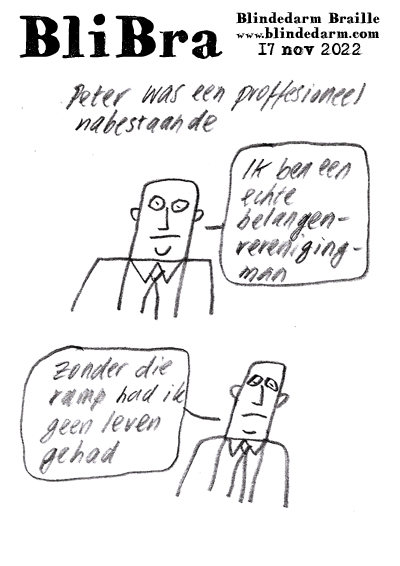 BliBra
Blindedarm Braille
www.blindedarm.com
17 nov 2022
Peter was een proffesioneel
nabestaande
Ik ben een
echte
belangen-
vereniging-
man
Zonder die
ramp had ik
geen leven
gehad